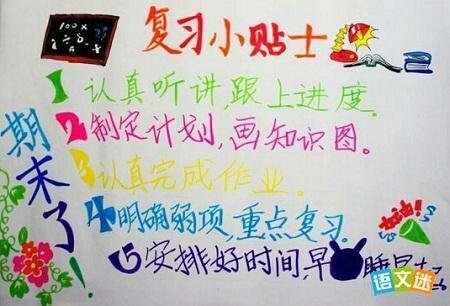 复习小贴士
期末了!
1 认真听讲,跟上进度.
2 制定计划,画知识图。
3 认真完成作业。
4 明确弱项,重点复习.
5 安排好时间,早睡早
加油!
语文迷